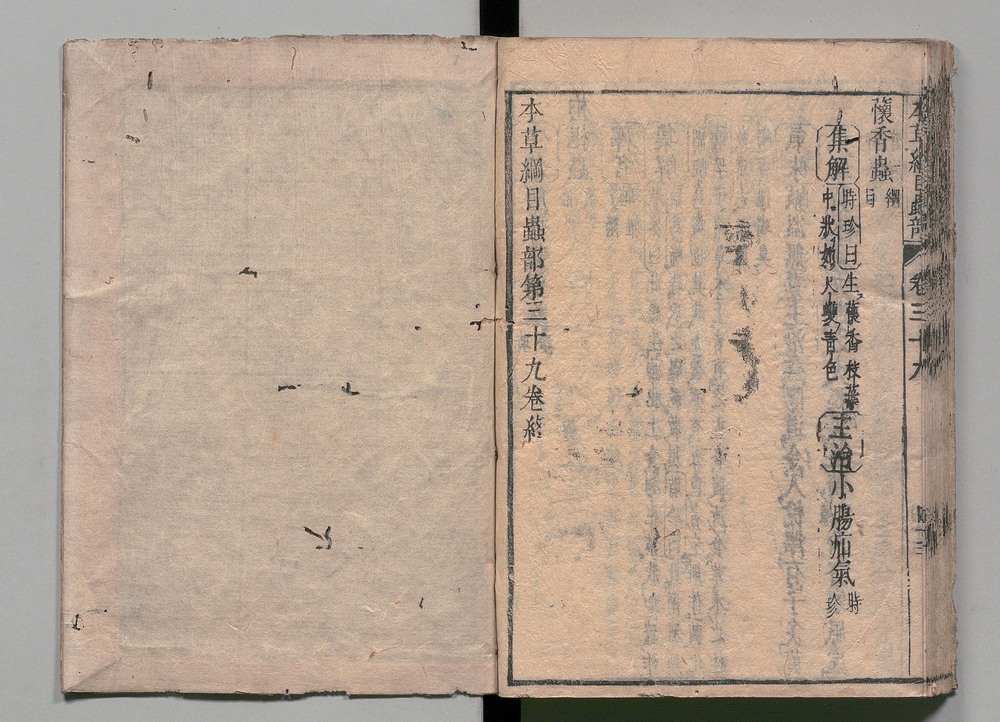 本草綱目蟲部 卷三十九
蘹香蟲 綱目
集解 時珍曰生蘹香枝葉
中狀如尺蠖青色
主治 小腸疝氣 時珍
本草綱目蟲部第三十九卷終